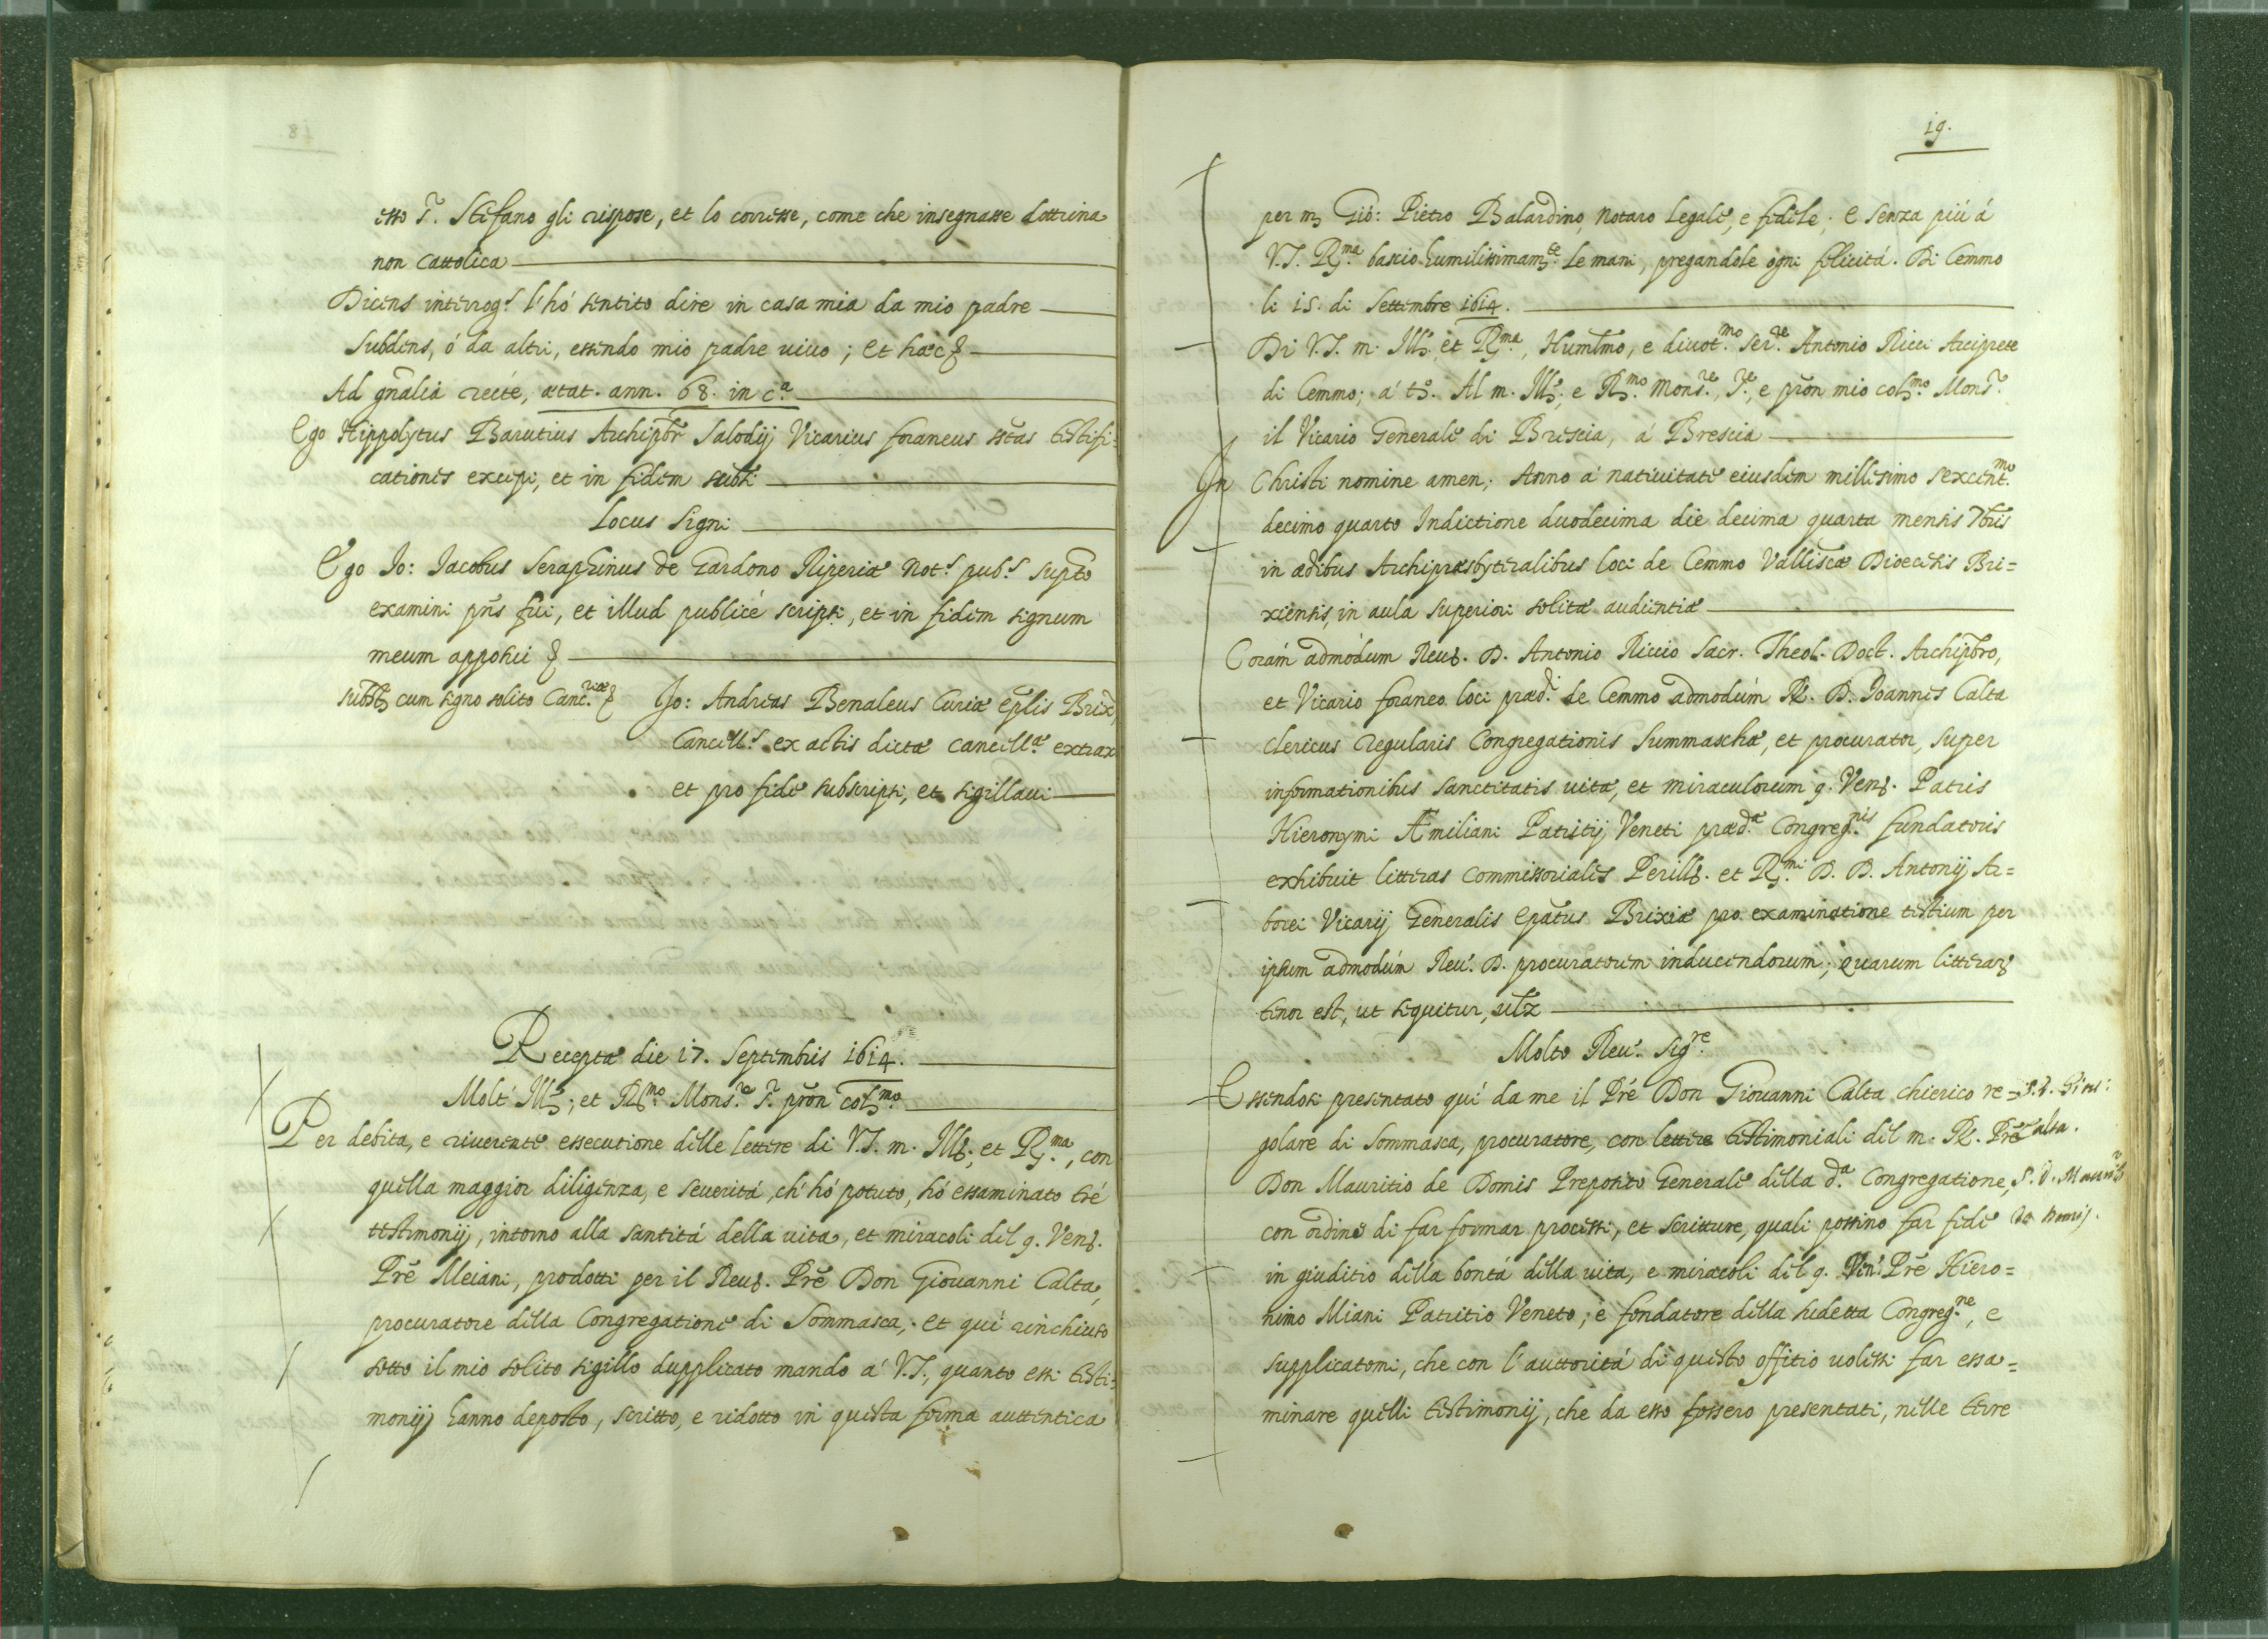 esso S.r Stefano gli rispose, et lo corresse, come che insegnasse dottrina
non Cattolica
Dicens interrog.s l'hó sentito dire in casa mia da mio padre
Subdens, ó da altri, essendo mio padre uiuo; et hæc &
Ad gñalia recté, ætat. ann. 68. in c.a
Ego Hippolytus Barutius Archipbr Salodij Vicarius foraneus sctas testifi=
cationes excepi, et in fidem subsi
Locus Signi
Ego Jo: Jacobus Seraphinus de Gardono Riperiæ Not.s pub.s supto
examini pñs fui, et illud publicé scripsi, et in fidem signum
meum apposui &
subst cum signo solito Canc.riæ & Jo: Andreas Benaleus Curiæ Eplis Brix
Cancell.s ex actis dictæ Cancill.æ extrax
et pro fide subscripsi, et sigillaui
Recepta die 17. Septembris 1614.
Molt' Ill; et R.mo Mons.re S.r pron col.mo
Per debita, e riuerente essecutione delle lettere di V.S. m. Ill; et R.ma, con
quella maggior diligenza, e seueritá, ch' hó potuto, hó essaminato tré
testimonij, intorno alla santitá della uita, et miracoli del q. Ven.
Prē Meiani, prodotti per il Reu. Prē Don Giouanni Calta,
procuratore della Congregatione di Sommasca, et qui rinchiuso
sotto il mio solito sigillo dupplicato mando á V.S., quanto essi testi=
monij hanno deposto, scritto, e ridotto in questa forma auttentica
19.
per m Gió: Pietro Balardino, Notaro Legale, e fidele; e senza piú á
V.S. R.ma bascio humilissimam.te le mani, pregandole ogni felicitá. Di Cemmo
li 15. di Settembre 1614.
Di V.S. m. Ill. et R.ma, Humlmo, e diuot.mo Ser.re Antonio Ricci Arciprete
di Cemmo; á t. Al m. Ill; e R.mo Mons.re, S.re, e pron mio col.mo Mons.r
il Vicario Generale di Brescia, á Brescia
In Christi nomine amen; Anno á natiuitate eiusdem millesimo sexcent.mo
decimo quarto Indictione duodecima die decima quarta mensis 7bris
in ædibus Archipræsbyteralibus loci de Cemmo Valliscæ Diœcesis Bri=
xiensis, in aula superiori solitæ audientiæ
Corám admódum Reu. D. Antonio Riccio Sacr. Theol. Doct. Archipbro,
et Vicario foraneo loci præd.i de Cemmo admodúm R. D. Joannes Calta
clericus regularis Congregationis Summaschæ, et procurator, super
informationibus sanctitatis uitæ, et miraculorum q. Ven. Patris
Hieronymi Æmiliani Patritij Veneti præd.æ Congreg.nis fundatoris
exhibuit litteras Commissoriales Perill. et R.mi D. D. Antonij Ar=
borei Vicarij Generalis Epatus Brixiæ pro examinatione testium per
ipsum admodúm Reu. D. procuratorem inducendorum; quarum litterar
tenor est, ut sequitur, ulz
Molto Reu. Sig.re
Essendosi presentato quí da me il Pré Don Giouanni Calta chierico re=
golare di Sommasca, procuratore, con lettere testimoniali del m. R. Prē
Don Mauritio de Domis Preposito Generale della d.a Congregatione,
con ordine di far formar processi, et scritture, quali possino far fede
in giuditio della bontá della uita, e miracoli del q. Ven. Prē Hiero=
nimo Miani Patritio Veneto, e fondatore della sudetta Congreg.ne, e
supplicatomi, che con l'auttoritá di questo offitio uolessi far essa=
minare quelli testimonij, che da esso fossero presentati, nelle terre